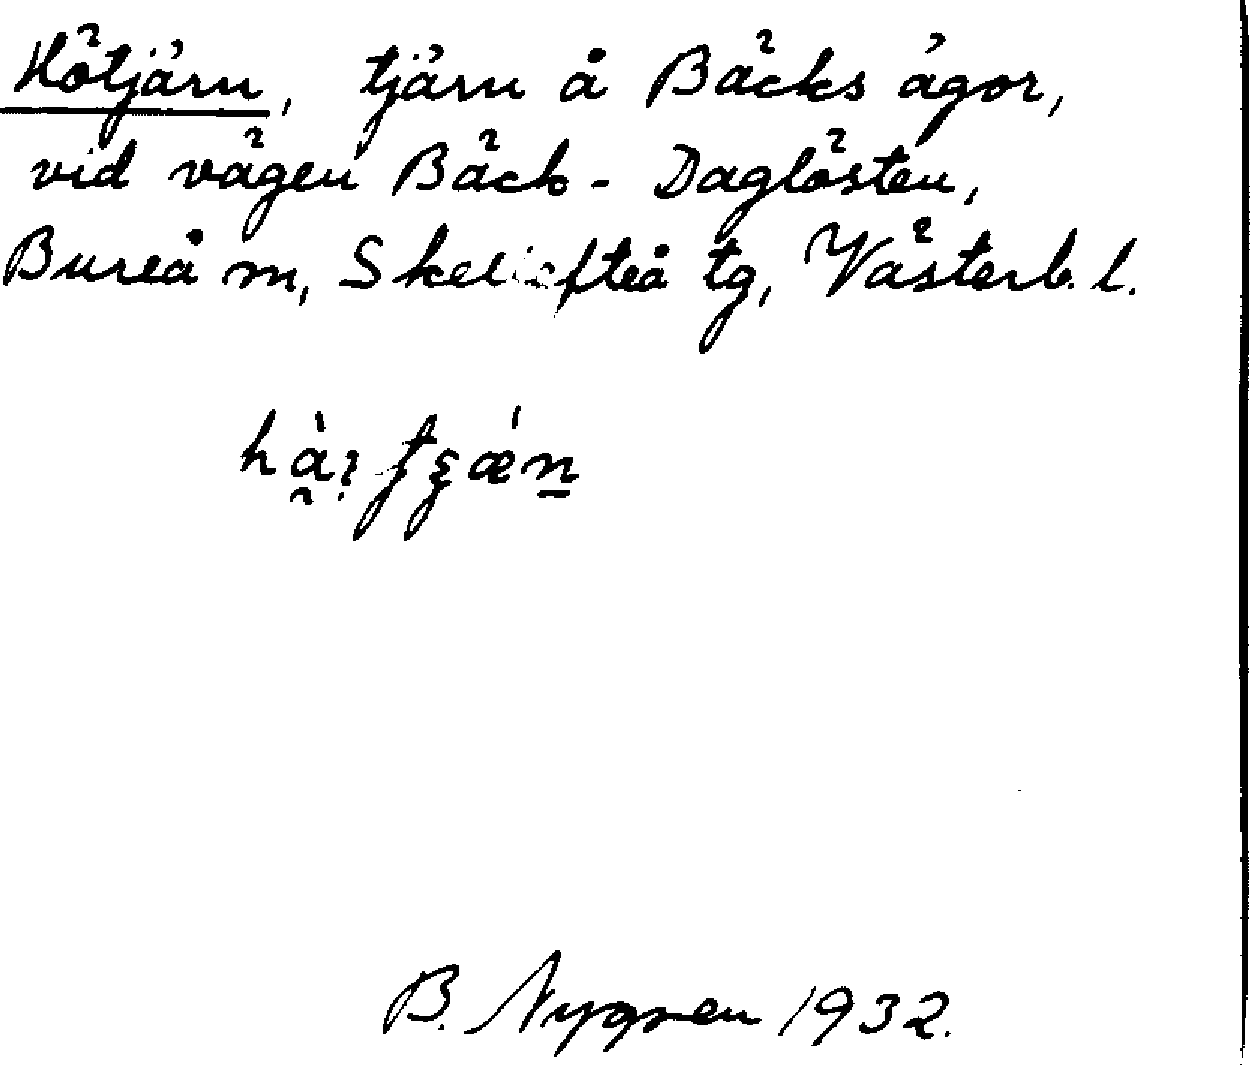 Hötjärn, tjärn å Bäcks ägor,
vid vägen Bäck - Daglösten,
Bureå m, Skellefteå tg, Västerb. l.
B. Nygren 1932.